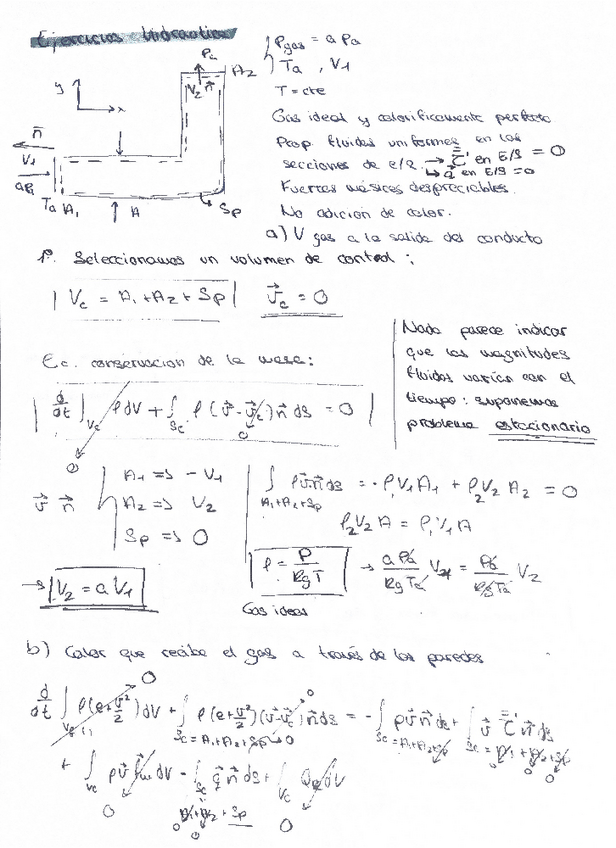 Ejercicios Hidraulica
Pgas = a Pa
Ta , V1
T = cte
Pa
A2
V2 n
y
x
n
V1
aPa
Ta A1
A
Sp
Gas ideal y calorificamente perfecto
Prop. fluidas uniformes en las
secciones de e/s. → τ' en E/S = 0
↳ q en E/S = 0
Fuerzas másicas despreciables.
No adicion de calor.
a) V gas a la salida del conducto
1º. Seleccionamos un volumen de control:
Vc = A1 + A2 + Sp
vc = 0
Nada parece indicar
que las magnitudes
fluidas varían con el
tiempo: suponemos
problema estacionario
Ec. conservacion de la masa:
d/dt ∫Vc ρ dV + ∫Sc ρ (v - vc) n ds = 0
0
0
v n
A1 => - V1
A2 => V2
Sp => 0
∫A1+A2+Sp ρ v n ds = - ρ1 V1 A1 + ρ2 V2 A2 = 0
ρ2 V2 A = ρ1 V1 A
ρ = P / Rg T
Gas ideal
→ a Pa / Rg Ta V1 = Pa / Rg Ta V2
→ V2 = a V1
b) Calor que recibe el gas a través de las paredes
d/dt ∫Vc ρ(e + v²/2) dV + ∫Sc=A1+A2+Sp ρ(e + v²/2)(v - vc) n ds = - ∫Sc=A1+A2+Sp p v n ds + ∫Sc=A1+A2+Sp v τ' n ds
+ ∫Vc ρ v fm dV - ∫Sc q n ds + ∫Vc Q dV
A1 + A2 + Sp
0
0 0
0